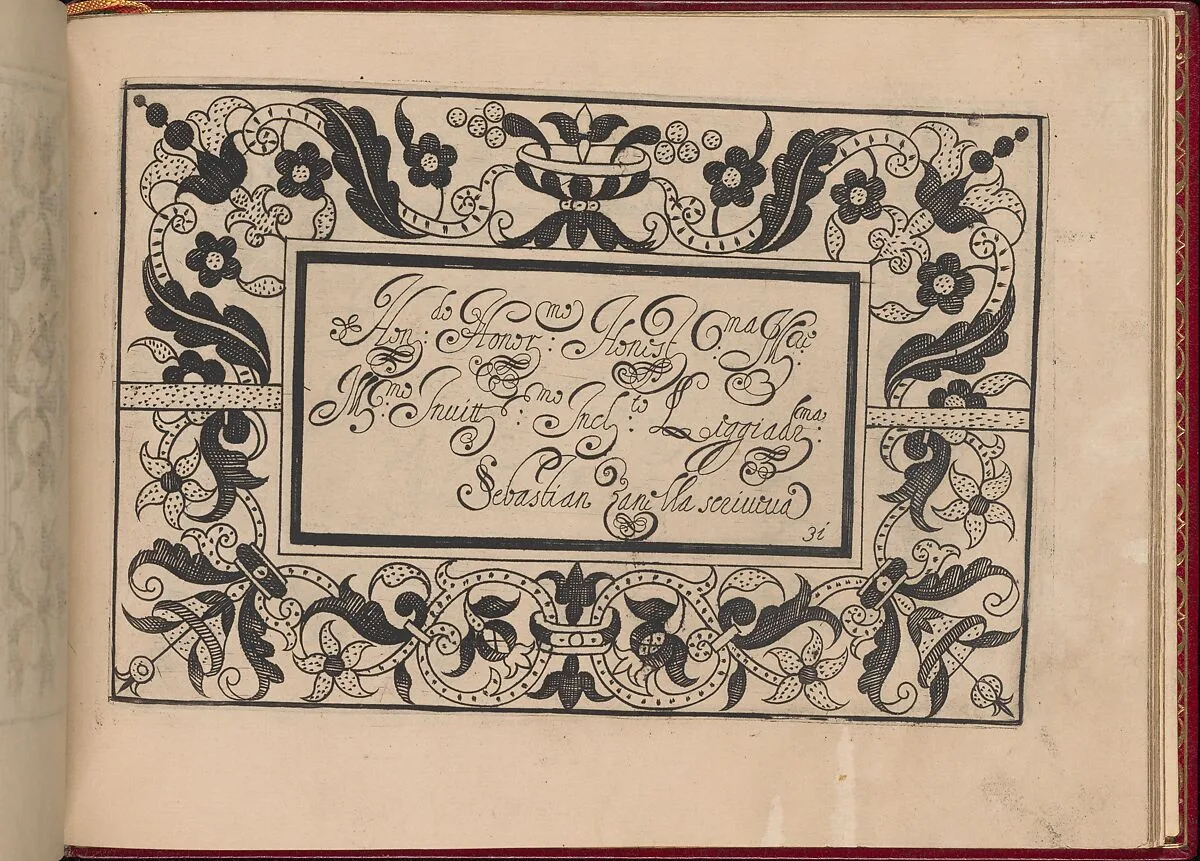 Hon: do Honor: mo Honist: ma Mai:
M: mo Inuitt: mo Incl: to Liggiadr: ma
Sebastian Zanella scriueua
31